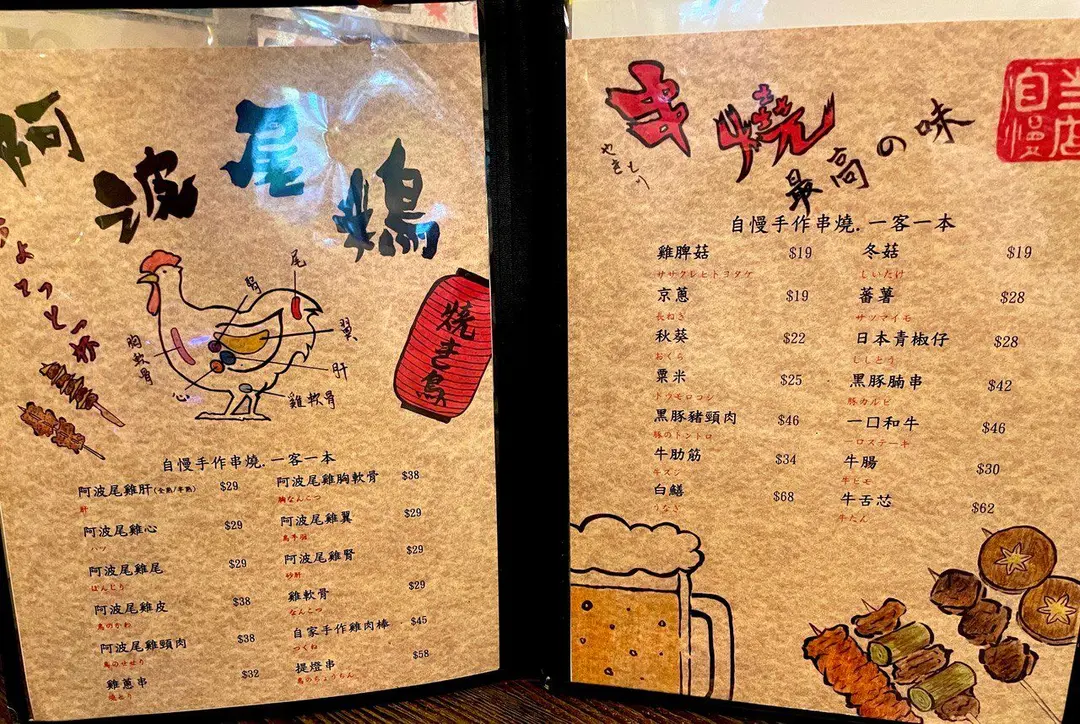 阿波尾鶏
ちょてっとっ歩
胸軟骨
心
腎
尾
翼
肝
雞軟骨
焼き鳥
自慢手作串燒.一客一本
阿波尾雞肝(全熟/半熟) $29
肝
阿波尾雞心 $29
ハツ
阿波尾雞尾 $29
ぼんじり
阿波尾雞皮 $38
鳥のかわ
阿波尾雞頸肉 $38
鳥のせせり
雞蔥串 $32
阿波尾雞胸軟骨 $38
胸なんこつ
阿波尾雞翼 $29
鳥手羽
阿波尾雞腎 $29
砂肝
雞軟骨 $29
なんこつ
自家手作雞肉棒 $45
つくね
提燈串 $58
鳥のちょうちん
串燒
やきとり
最高の味
当店自慢
自慢手作串燒.一客一本
雞脾菇 $19
京蔥 $19
長ねぎ
秋葵 $22
おくら
粟米 $25
トウモロコシ
黑豚豬頸肉 $46
豚のトントロ
牛肋筋 $34
牛スジ
白鱔 $68
うなぎ
冬菇 $19
しいたけ
蕃薯 $28
サツマイモ
日本青椒仔 $28
ししとう
黑豚腩串 $42
豚カルビ
一口和牛 $46
ロステーキ
牛腸 $30
牛ヒモ
牛舌芯 $62
牛たん